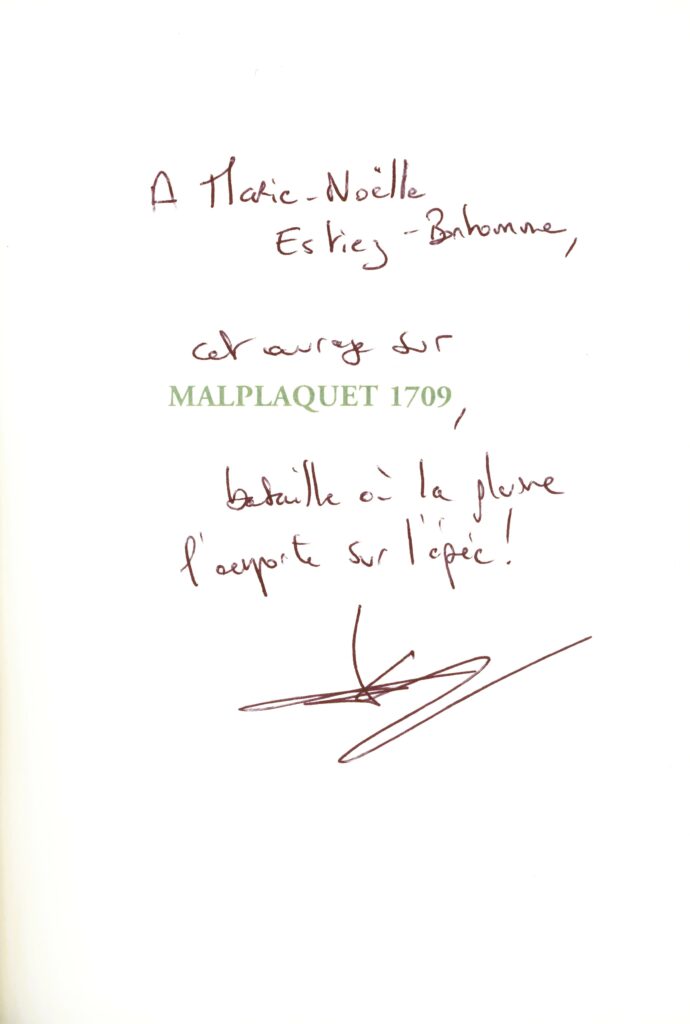 A Marie-Noëlle
Estiez-Bonhomme,
cet ouvrage sur
MALPLAQUET 1709,
bataille où la plume
l'emporte sur l'épée!